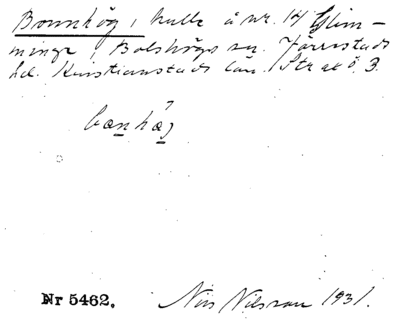 Bonnhög, kulle å nr. 14 Glim-
minge, Bolshögs sn. Järrestads
hd. Kristianstads län. Strax ö. 3.
bænhǽg
Nr 5462.
Nils Nilsson 1931.